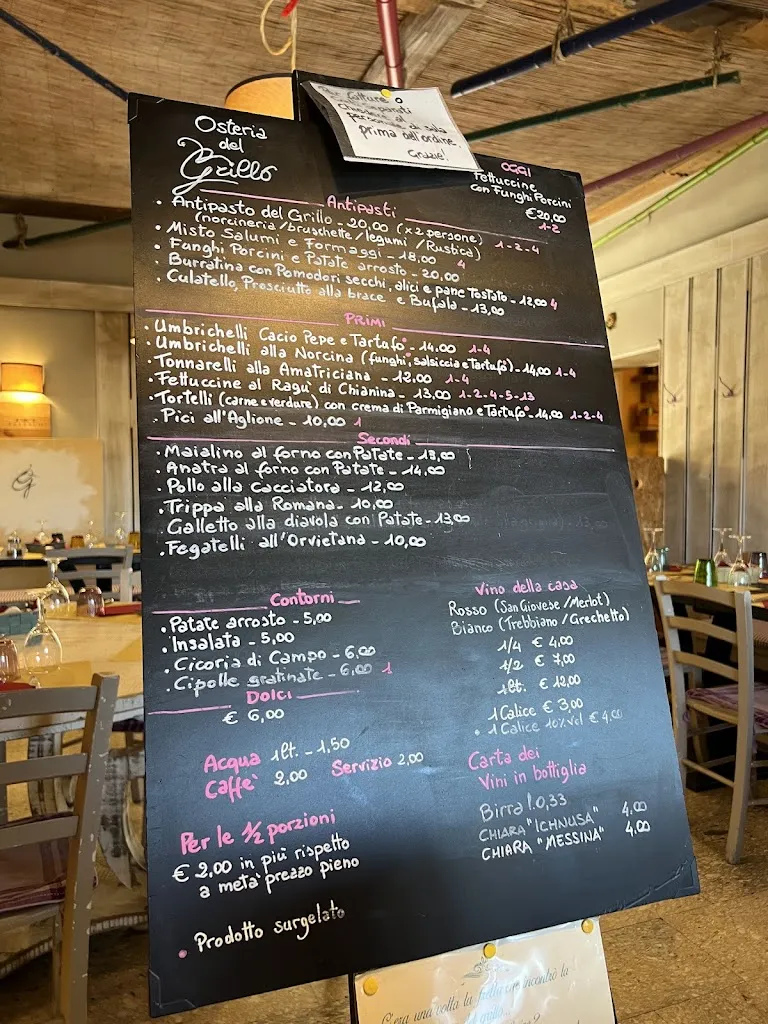 Per Cotture
separati
chiedere al
personale di sala
prima dell'ordine.
Grazie!
Osteria
del
Grillo
OGGI
Fettuccine
con Funghi Porcini
€20,00
1-2
Antipasti
• Antipasto del Grillo - 20,00 (x 2 persone) 1-2-4
(norcineria/bruschette/legumi/Rustica)
• Misto Salumi e Formaggi - 18,00 4
• Funghi Porcini e Patate arrosto - 20,00
• Burratina con Pomodori secchi, alici e pane Tostato - 12,00 4
• Culatello, Prosciutto alla brace e Bufala - 13,00
PRIMI
• Umbrichelli Cacio Pepe e Tartufo° - 14,00 1-4
• Umbrichelli alla Norcina (funghi°, salsiccia e Tartufo°) - 14,00 1-4
• Tonnarelli alla Amatriciana - 12,00 1-4
• Fettuccine al Ragù di Chianina - 13,00 1-2-4-5-13
• Tortelli (carne e verdure) con crema di Parmigiano e Tartufo° - 14,00 1-2-4
• Pici all'Aglione - 10,00 1
Secondi
• Maialino al forno con Patate - 13,00
• Anatra al forno con Patate - 14,00
• Pollo alla Cacciatora - 12,00
• Trippa alla Romana - 10,00
• Galletto alla diavola con Patate - 13,00
• Fegatelli all'Orvietana - 10,00
Contorni
• Patate arrosto - 5,00
• Insalata - 5,00
• Cicoria di Campo - 6,00
• Cipolle gratinate - 6,00 1
DOLCI
€ 6,00
Acqua 1lt. - 1,50
Caffe' 2,00 Servizio 2,00
Per le 1/2 porzioni
€ 2,00 in più rispetto
a metà prezzo pieno
• Prodotto surgelato
Vino della casa
Rosso (SanGiovese/Merlot)
Bianco (Trebbiano/Grechetto)
1/4 € 4,00
1/2 € 7,00
1lt. € 12,00
1 Calice € 3,00
• 1 Calice 10% Vol € 4,00
Carta dei
Vini in bottiglia
Birra l.0,33
CHIARA "ICHNUSA" 4,00
CHIARA "MESSINA" 4,00
C'era una volta la
incontrò la
grillo